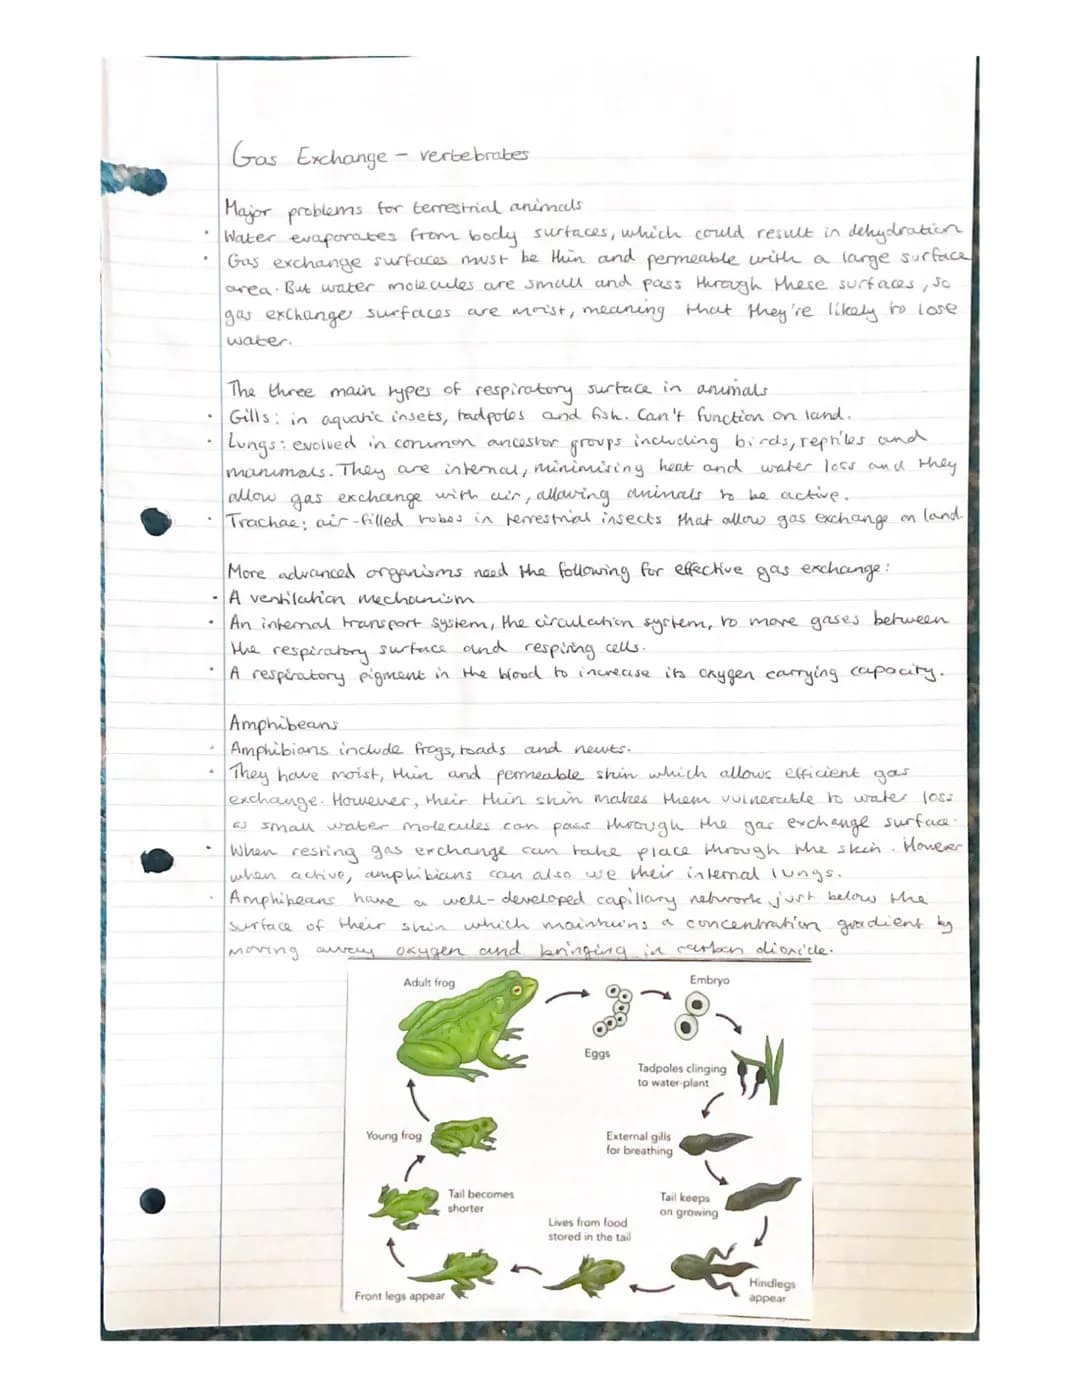 Gas Exchange - vertebrates
Major problems for terrestrial animals
· Water evaporates from body surfaces, which could result in dehydration
· Gas exchange surfaces must be thin and permeable with a large surface
area. But water molecules are small and pass through these surfaces, so
gas exchange surfaces are moist, meaning that they're likely to lose
water.
The three main types of respiratory surface in animals
· Gills: in aquatic insets, tadpoles and fish. Can't function on land.
· Lungs: evolved in common ancestor groups including birds, reptiles and
mammals. They are internal, minimising heat and water loss and they
allow gas exchange with air, allowing animals to be active.
· Trachae: air-filled tubes in terrestrial insects that allow gas exchange on land
More advanced organisms need the following for effective gas exchange:
· A ventilation mechanism
· An internal transport system, the circulation system, to move gases between
the respiratory surface and respiring cells.
· A respiratory pigment in the blood to increase its oxygen carrying capacity.
Amphibeans
· Amphibians include frogs, toads and newts.
· They have moist, thin and permeable skin which allows efficient gas
exchange. However, their thin skin makes them vulnerable to water loss
as small water molecules can pass through the gas exchange surface.
· When resting gas exchange can take place through the skin. However
when active, amphibians can also use their internal lungs.
· Amphibeans have a well-developed capillary network just below the
surface of their skin which maintains a concentration gradient by
moving away oxygen and bringing in carbon dioxide.
Adult frog
Eggs
Embryo
Tadpoles clinging
to water-plant
External gills
for breathing
Tail keeps
on growing
Hindlegs
appear
Lives from food
stored in the tail
Front legs appear
Tail becomes
shorter
Young frog